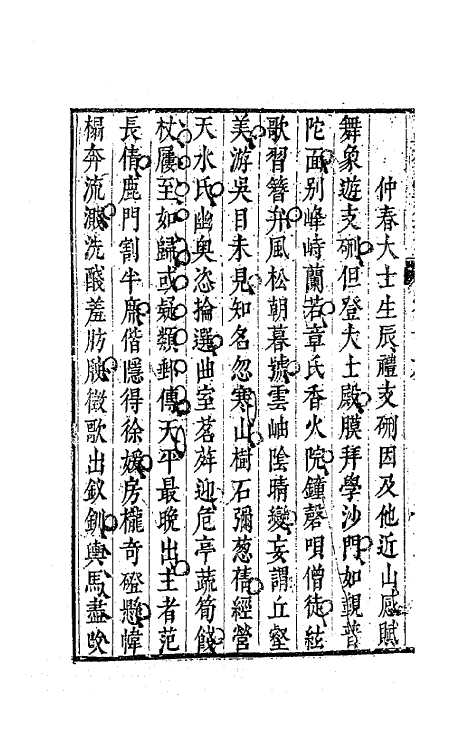 仲春大士生辰禮支硎因及他近山感賦
舞象遊支硎但登大士殿膜拜學沙門如覩普
陀面别峰峙蘭若章氏香火院鐘磬唄僧徒絃
歌習簪弁風松朝暮號雲岫陰晴變妄謂丘壑
美游吳目未見知名忽寒山樹石彌葱蒨經營
天水氏幽奥恣掄選曲室茗荈迎危亭蔬筍餞
杖屨至如歸或疑類郵傳天平最晚出主者范
長倩鹿門割半廡偕隱得徐媛房櫳奇磴懸幃
榻奔流濺洗醆羞肪腴徵歌出釵釧輿馬盡